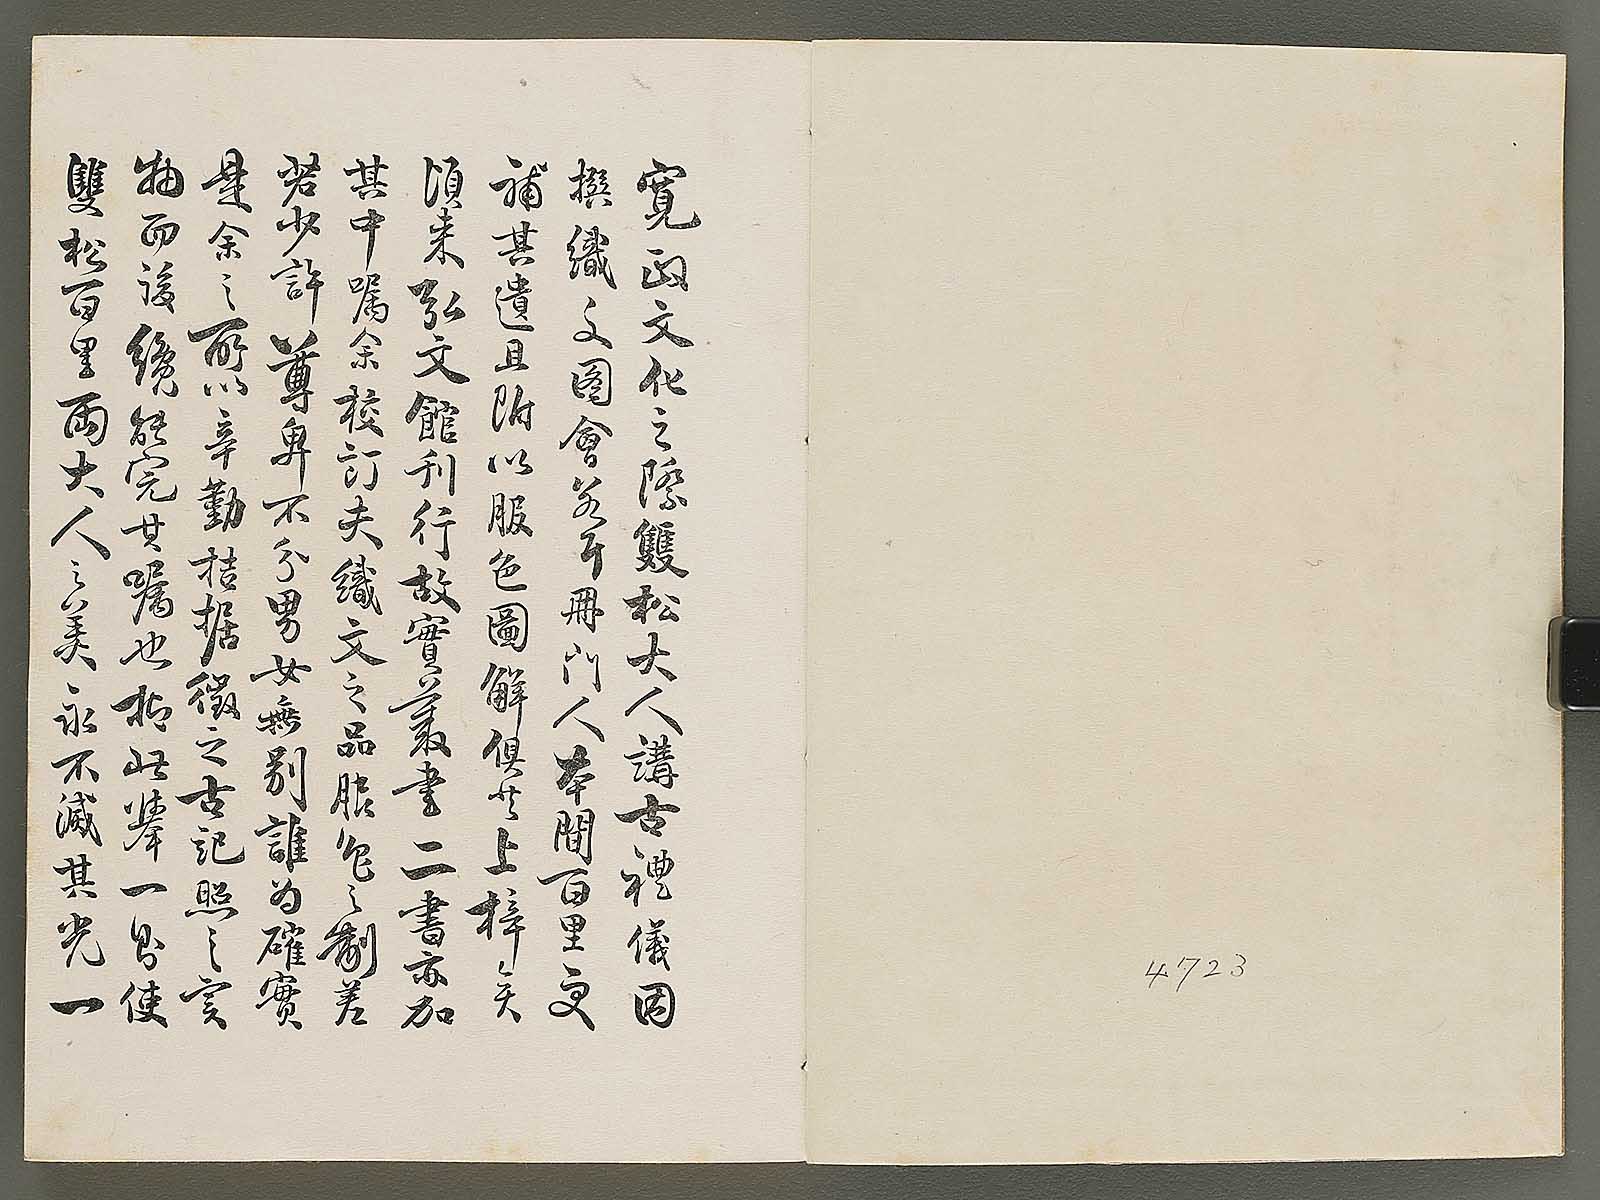 寛政文化之際雙松大人講古禮儀因
撰織文図會若干冊門人本間百里更
補其遺且附以服色圖解倶共上梓矣
頃来弘文館刊行故實叢書二書亦加
其中嘱余校訂夫織文之品服色之制差
若少許尊卑不分男女無別誰為確實
是余之所以辛勤拮据徴之古記照之実
物而後纔能完其嘱也抑此挙一出使
雙松百里両大人之美永不滅其光一
4723